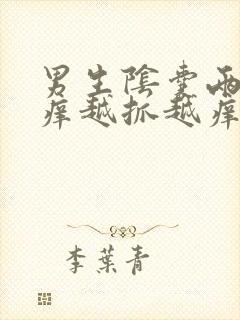 男生陰囊兩
痒越抓越痒
李葉青